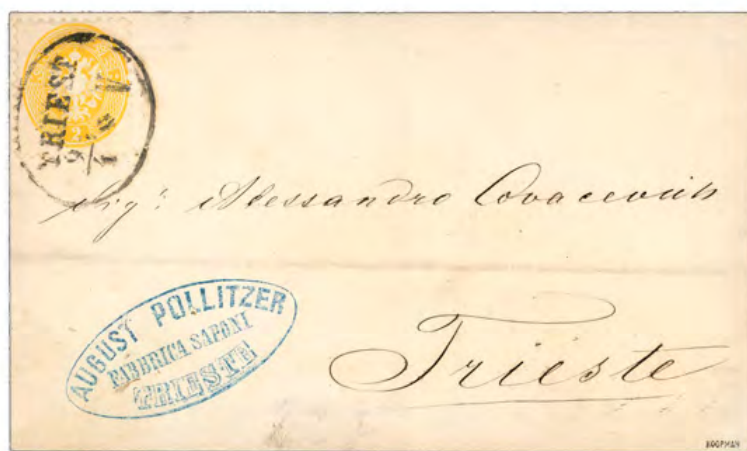 TRIEST
2
Sigr: Alessandro Covacevich
AUGUST POLLITZER
FABBRICA SAPONI
TRIESTE
Trieste
KOOPMAN